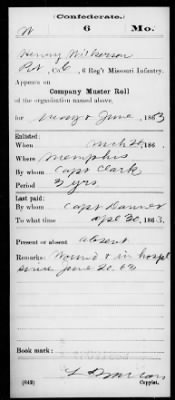 (Confederate.)
W 6 Mo.
Henry Wilkerson
Pvt, Co. C, 6 Reg't Missouri Infantry.
Appears on
Company Muster Roll
of the organization named above,
for May & June, 1863
Enlisted:
When Mch 20, 186 .
Where Memphis
By whom Capt Clark
Period 3 yrs.
Last paid:
By whom Capt
To what time Apl 30, 1863
Present or absent absent
Remarks: Wound & in hospl
since June 20, 63
Book mark:
(642) Copyist.